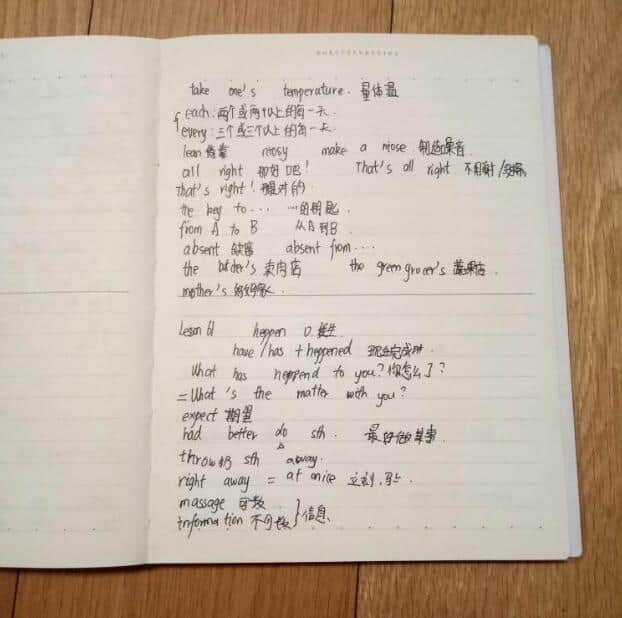 take one's temperature. 量体温
each: 两个或两个以上的每一天.
every: 三个或三个以上的每一天.
lean 倚靠 niosy make a niose 制造噪音
all right 那好吧! That's all right 不用谢/
That's right! 很对的.
the key to... ...的钥匙.
from A to B 从A到B
absent 缺席 absent from...
the 卖肉店 the greengrocer's 蔬果店
mother's 妈妈家.
Lesson 61 heppen
have/has + heppened 现在完成时.
What has heppend to you? 你怎么了?
= What's the matter with you?
expect 期望
had better do sth. 最好做某事
throw 扔 sth away.
right away = at once 立刻,马上
massage 可数
Information 不可数 } 信息